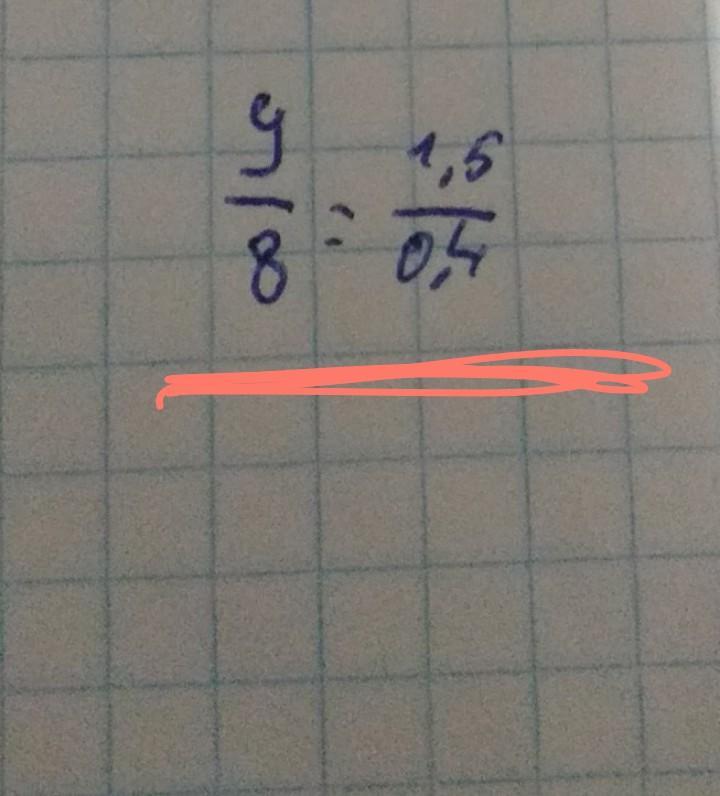 y/8 = 1,5/0,4